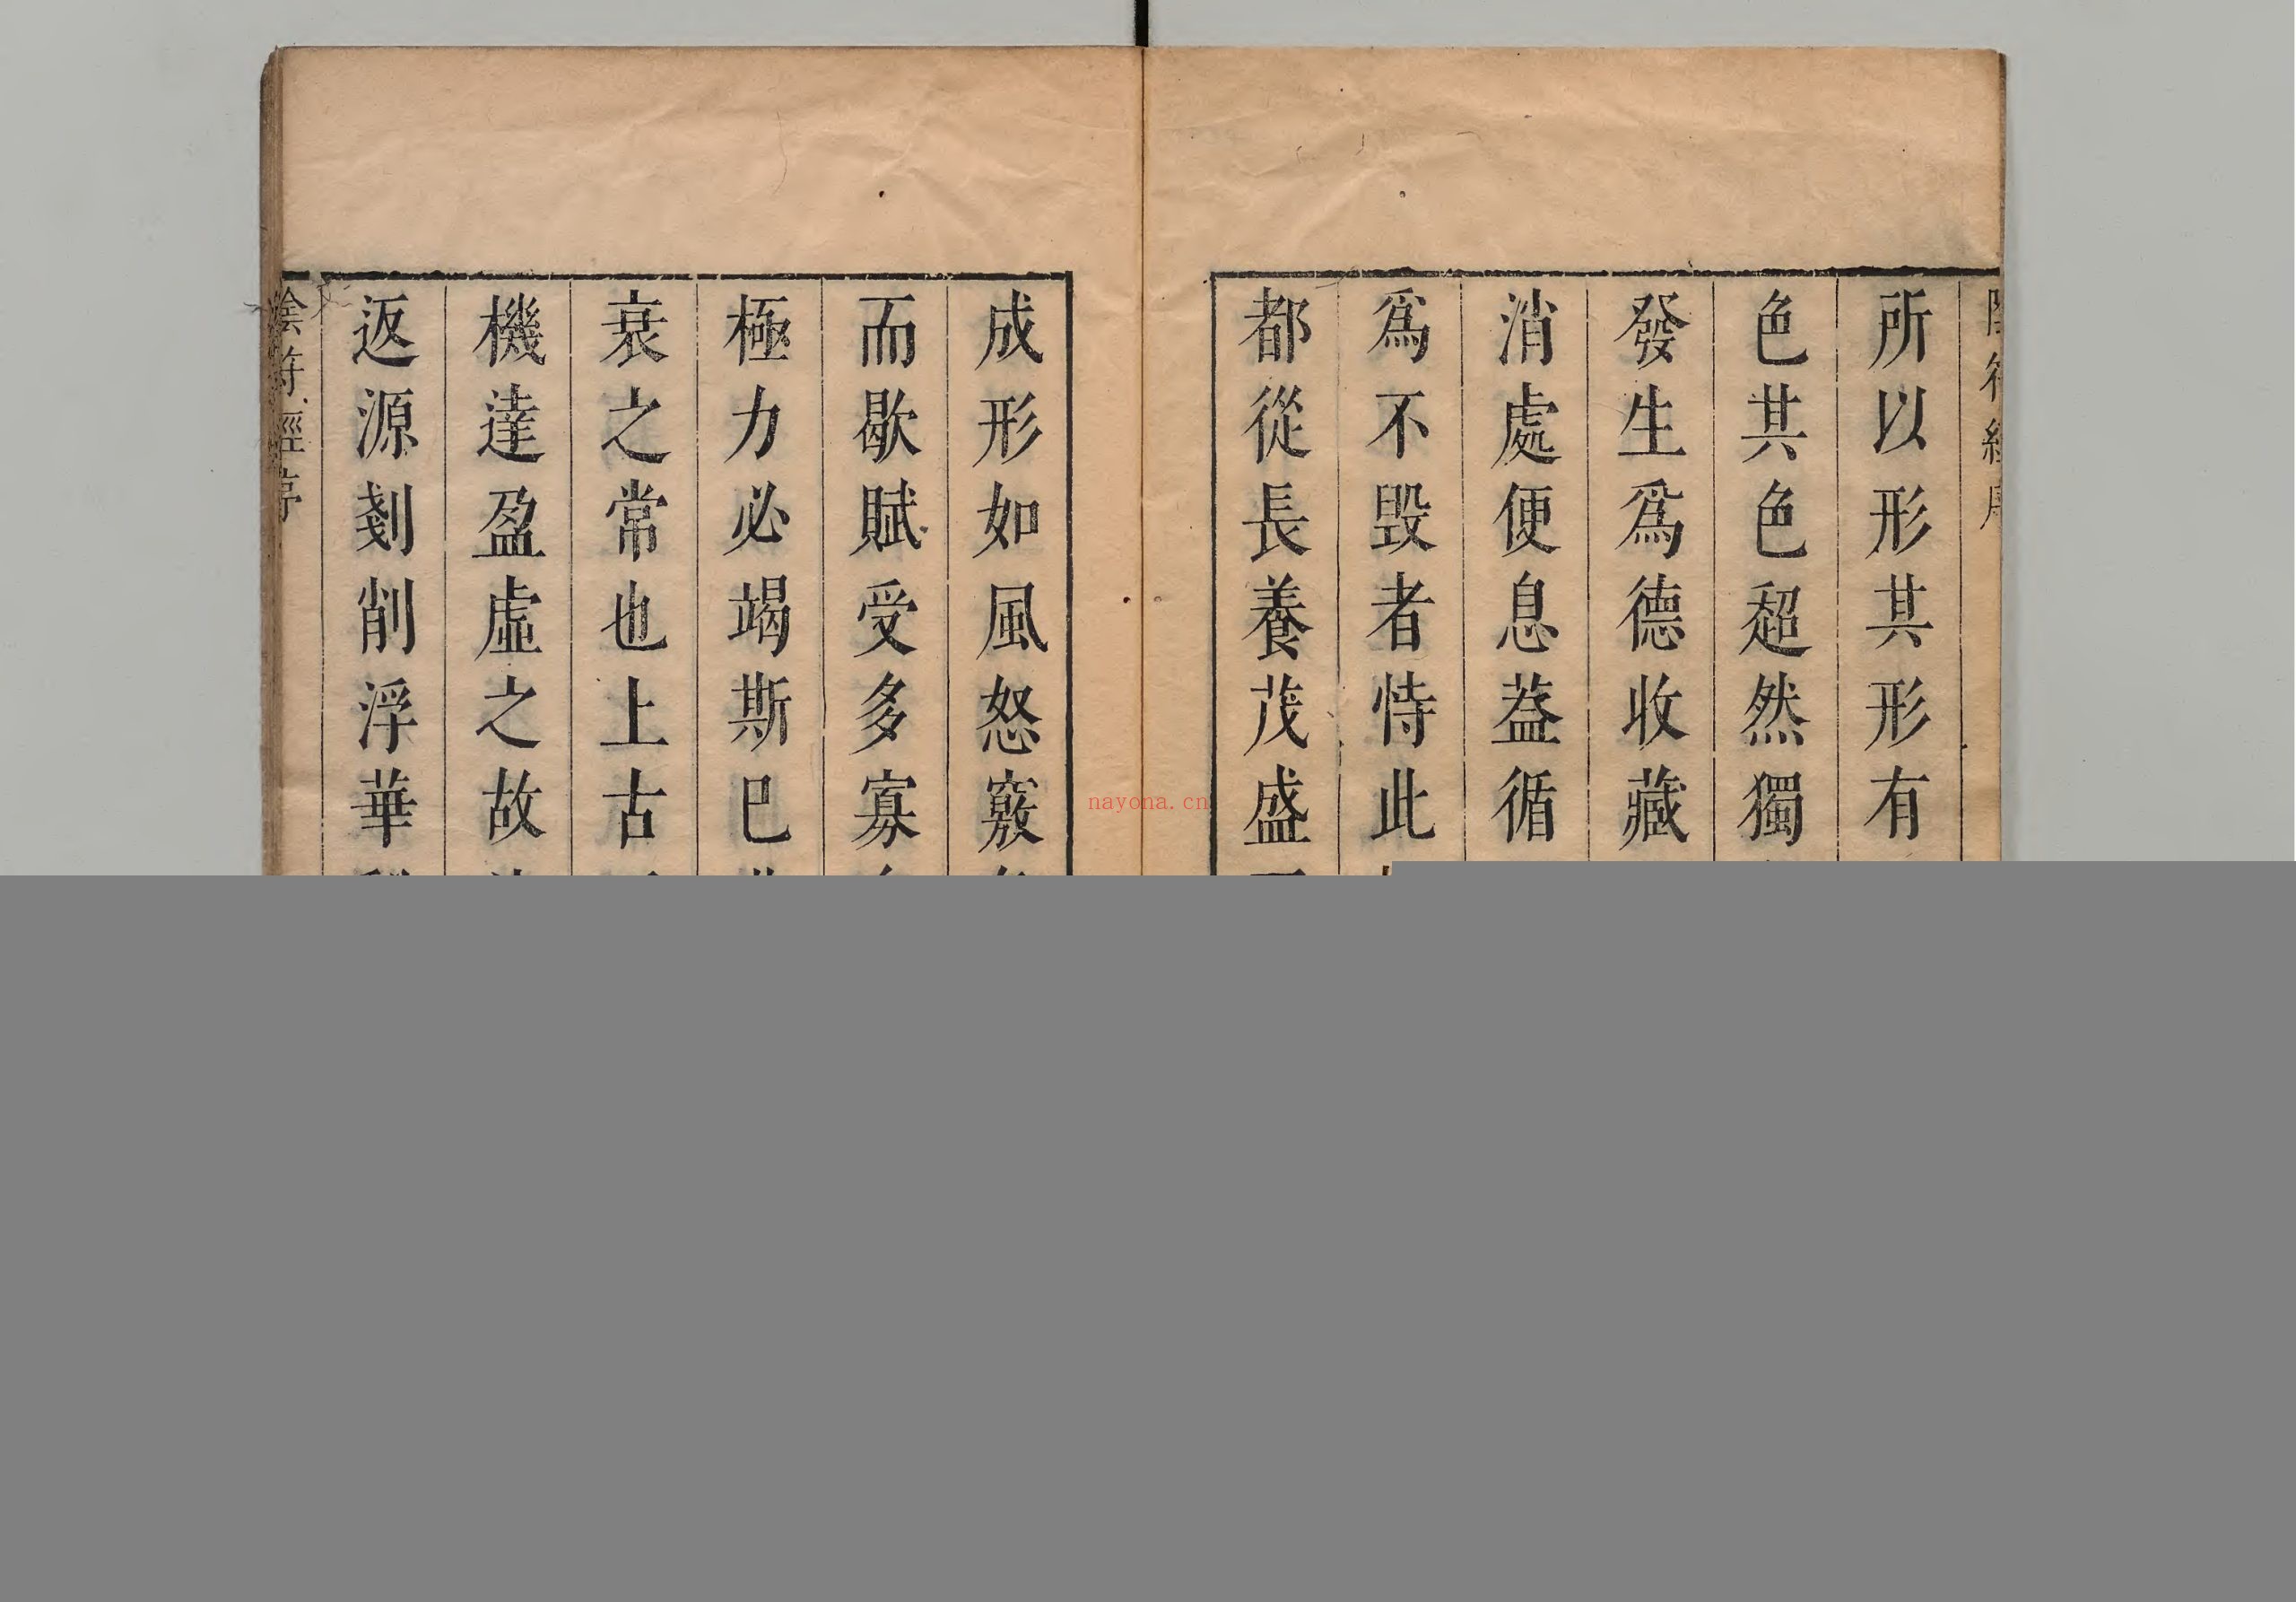 所以形其形有
色其色超然獨
發生爲德收藏
消處便息葢循
爲不毀者恃此
都從長養茂盛
成形如風怒竅
而歇賦受多寡
極力必竭斯巳
衰之常也上古
機達盈虛之故
返源剗削浮華
陰符經序
nayona.cn